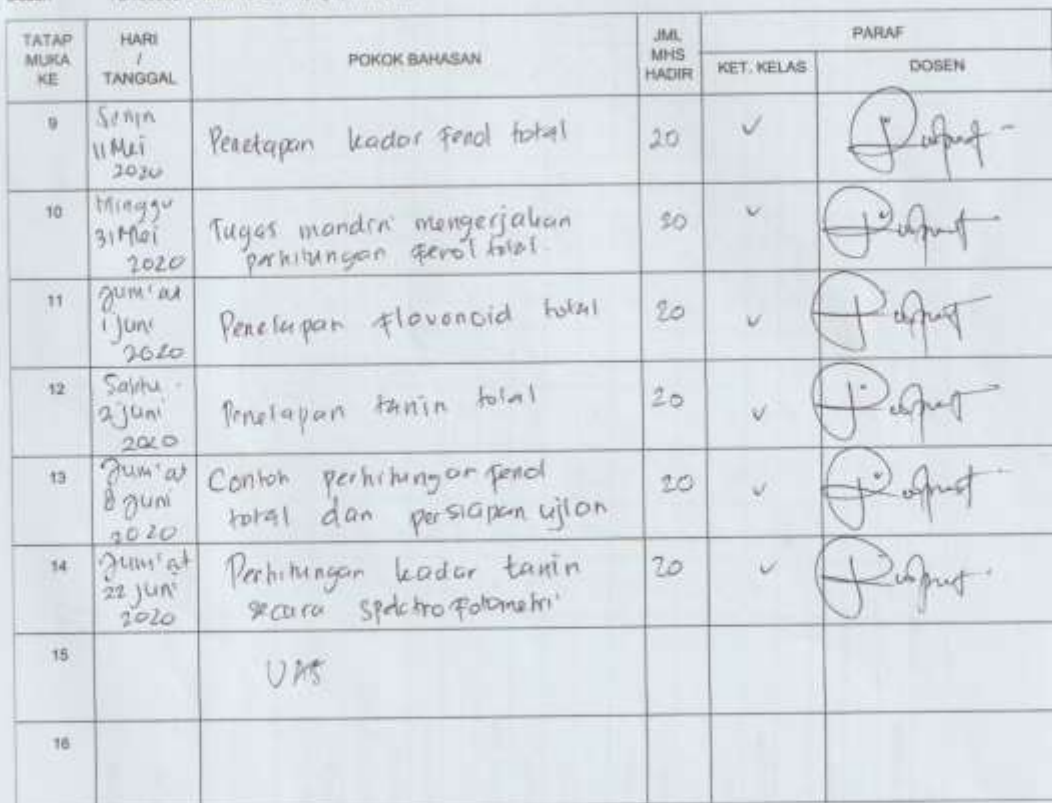 TATAP MUKA KE
HARI / TANGGAL
POKOK BAHASAN
JML MHS HADIR
PARAF
KET. KELAS
DOSEN
9
Senin
11 Mei
2020
Penetapan kadar fenol total
20
✓
10
Minggu
31 Mei
2020
Tugas mandiri mengerjakan
perhitungan fenol total
20
✓
11
Jum'at
1 Juni
2020
Penetapan flavonoid total
20
✓
12
Sabtu
2 Juni
2020
Penetapan tanin total
20
✓
13
Jum'at
8 Juni
2020
Contoh perhitungan fenol
total dan persiapan ujian
20
✓
14
Jum'at
22 Juni
2020
Perhitungan kadar tanin
secara spectrofotometri
20
✓
15
UAS
16